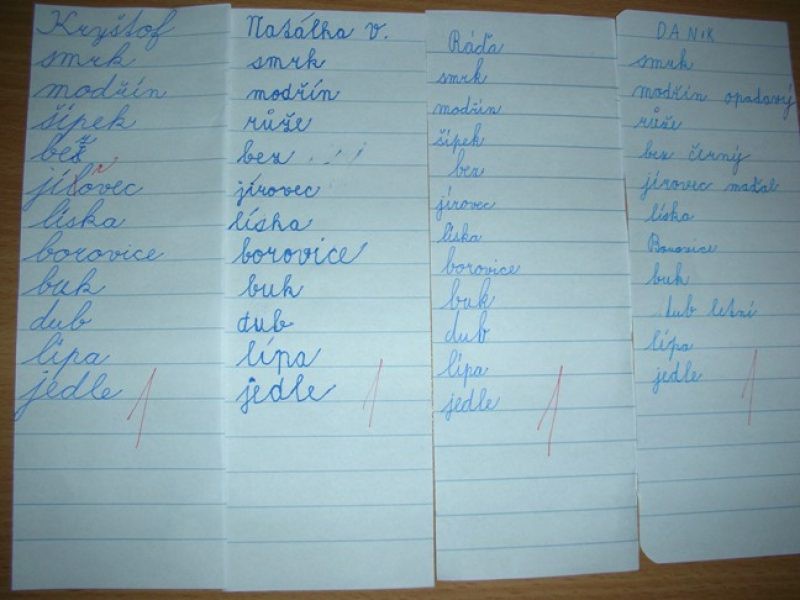 Kryštof
smrk
modřín
šípek
bez
jírovec
líska
borovice
buk
dub
lípa
jedle
1
Natálka V.
smrk
modřín
růže
bez
jírovec
líska
borovice
buk
dub
lípa
jedle
1
Ráďa
smrk
modřín
šípek
bez
jírovec
líska
borovice
buk
dub
lípa
jedle
1
DANIK
smrk
modřín opadavý
růže
bez černý
jírovec maďal
líska
Borovice
buk
dub letní
lípa
jedle
1